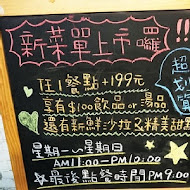 新菜單上市囉!!
超划
任1餐點+199元
享有$100飲品or湯品
還有新鮮沙拉及精美甜
星期一~星期日
AM11:00-PM10:00
最後點餐時間PM9:00